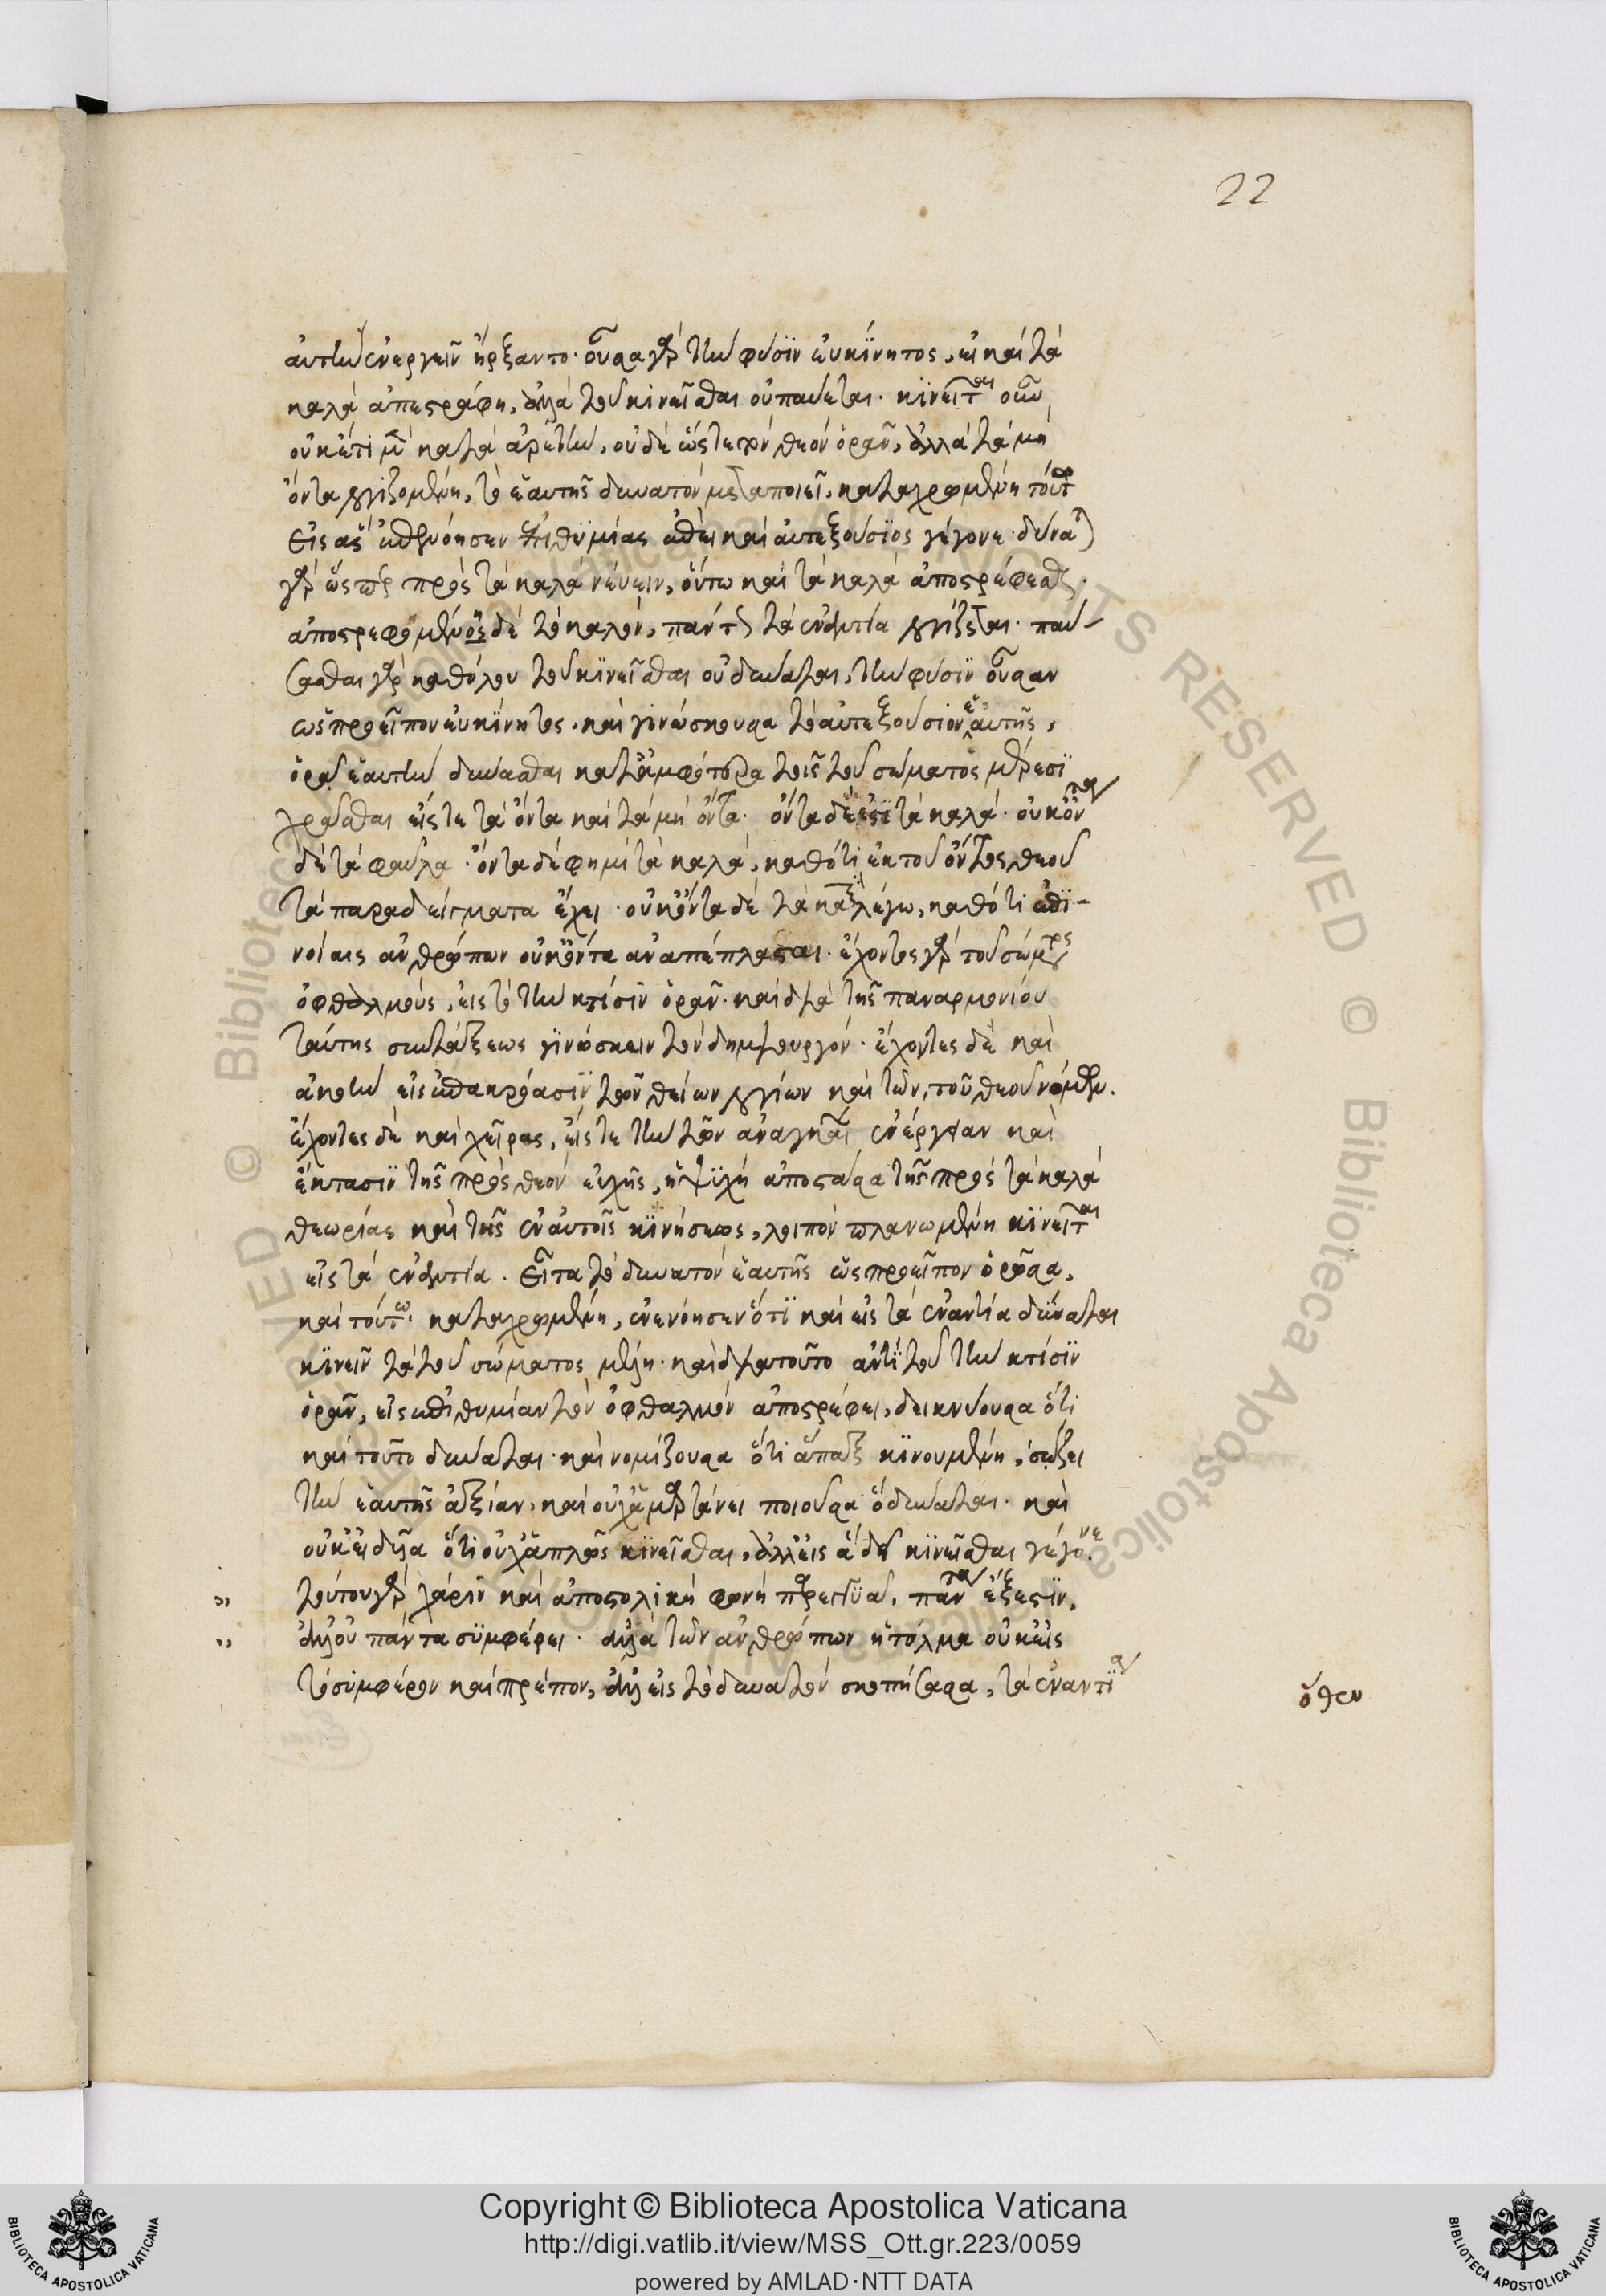 22
αὐτὴν ἐνεργεῖν ἤρξαντο· οὖσα γὰρ τὴν φύσϊν εὐκίνητος, εἰ καὶ τὰ
καλὰ ἀπεστράφη, ἀλλὰ τοῦ κινεῖσθαι οὐ παύεται· κϊνεῖται οὖν
οὐκέτι μὲν κατὰ ἀρετὴν, οὐδὲ ὥστε τὸν θεὸν ὁρᾶν, ἀλλὰ τὰ μὴ
ὄντα λογιζομένη, τὸ ἑαυτῆς δυνατὸν μεταποιεῖ, καταχρωμένη τούτω
εἰς ἃς ἐπενόησεν ἐπιθϋμίας ἐπεὶ καὶ αὐτεξούσϊος γέγονε· δύναται
γὰρ ὥσπερ πρὸς τὰ καλὰ νεύειν, οὕτω καὶ τὰ καλὰ ἀποστρέφεσθαι·
ἀποστρεφομένος δὲ τὸ καλὸν, πάντως τὰ ἐναντία λογίζεται· παύ-
σασθαι γὰρ καθόλου τοῦ κϊνεῖσθαι οὐ δύναται, τὴν φύσϊν οὖσαν
ὡς προεῖπον εὐκϊνητος· καὶ γινώσκουσα τὸ αὐτεξούσιον ἑαυτῆς,
ὁρᾷ ἑαυτὴν δύνασθαι κατ' ἀμφότερα τοῖς τοῦ σώματος μέρεσϊ
χρᾶσθαι εἴς τε τὰ ὄντα καὶ τὰ μὴ ὄντα· ὄντα δέ ἐστι τὰ καλά· οὐκ ὄντα
δὲ τὰ φαῦλα· ὄντα δέ φημι τὰ καλὰ, καθότι ἐκ τοῦ ὄντος θεοῦ
τὰ παραδείγματα ἔχει· οὐκ ὄντα δὲ τὰ κακὰ λέγω, καθότι ἐπϊ-
νοίαις ἀνθρώπων οὐκ ὄντα ἀναπέπλασται· ἔχοντος γὰρ τοῦ σώματος
ὀφθαλμοὺς, εἰς τὸ τὴν κτίσϊν ὁρᾶν· καὶ διὰ τῆς παναρμονίου
ταύτης συντάξεως γϊνώσκειν τὸν δημιουργόν· ἔχοντες δὲ καὶ
ἀκοὴν εἰς ἐπακρόασϊν τῶν θείων λογίων καὶ τῶν τοῦ θεοῦ νόμων.
ἔχοντες δὲ καὶ χεῖρας, εἴς τε τὴν τῶν ἀναγκαίων ἐνέργειαν καὶ
ἔκτασϊν τῆς πρὸς θεὸν εὐχῆς, ἡ ψϋχὴ ἀποστᾶσα τῆς πρὸς τὰ καλὰ
θεωρίας καὶ τῆς ἐν αὐτοῖς κϊνήσεως, λοιπὸν πλανωμένη κϊνεῖται
εἰς τὰ ἐναντία. Εἶτα τὸ δυνατὸν ἑαυτῆς ὡς προεῖπον ὁρῶσα,
καὶ τούτω καταχρωμένη, ἐνενόησεν ὅτϊ καὶ εἰς τὰ ἐναντία δύναται
κϊνεῖν τὰ τοῦ σώματος μέλη· καὶ διὰ τοῦτο ἀντὶ τοῦ τὴν κτίσϊν
ὁρᾶν, εἰς ἐπιθυμίαν τὸν ὀφθαλμὸν ἀποστρέφει, δεικνύουσα ὅτι
καὶ τοῦτο δύναται· καὶ νομίζουσα ὅτι ἅπαξ κϊνουμένη, σώζει
τὴν ἑαυτῆς ἀξίαν, καὶ οὐχ ἁμαρτάνει ποιοῦσα ὃ δύναται· καὶ
οὐκ εἰδυῖα ὅτι οὐχ ἁπλῶς κϊνεῖσθαι, ἀλλ' εἰς ἃ δεῖ κϊνεῖσθαι γέγονε·
τούτου γὰρ χάριν καὶ ἀποστολικὴ φωνὴ παρεγγυᾷ, πάντα ἔξεστϊν,
ἀλλ' οὐ πάντα συμφέρει· ἀλλὰ τῶν ἀνθρώπων ἡ τόλμα οὐκ εἰς
τὸ συμφέρον καὶ πρέπον, ἀλλ' εἰς τὸ δυνατὸν σκοπήσασα, τὰ ἐναντία
ὅθεν